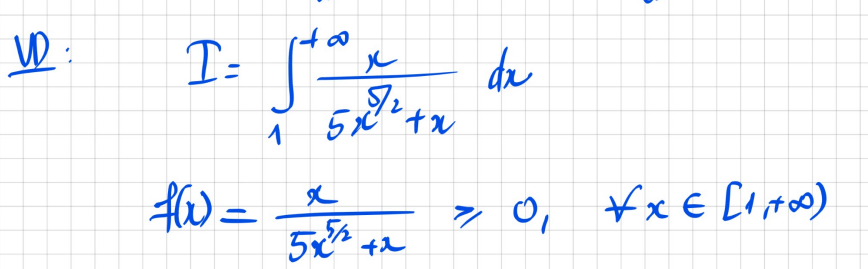 VD: I = ∫₁^{+∞} x / (5x^{5/2} + x) dx
f(x) = x / (5x^{5/2} + x) ≥ 0, ∀x ∈ [1,+∞)